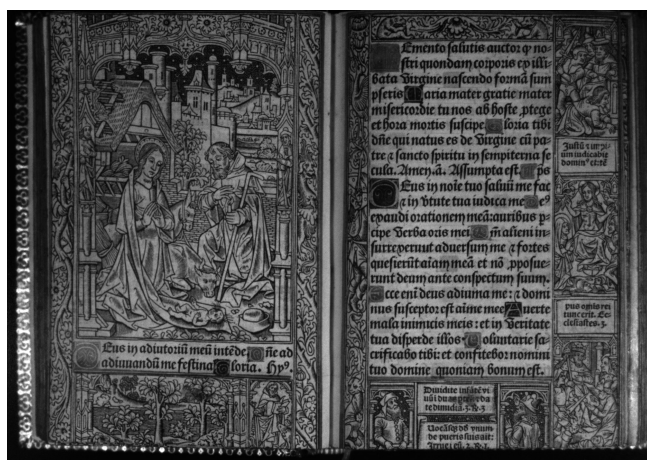 Eus in adiutoriū meū intēde. Dñe ad
adiuvandū me festina. Gloria. Hyᵒ.
Emento salutis auctor ꝙ no-
stri quondam corporis ex illi
bata Virgine nascendo formā sum
pseris Maria mater gratie mater
misericordie tu nos ab hoste ꝓtege
et hora mortis suscipe. Gloria tibi
dñe qui natus es de Virgine cū pa-
tre ⁊ sancto spiritu in sempiterna se
cula. Amen. ā. Assumpta est. ps
Eus in noīe tuo saluū me fac
⁊ in Vtute tua iudica me eꝰ
exaudi orationem meā: auribus p-
cipe Verba oris mei. Qm̄ alieni in-
surrexerunt aduersum me ⁊ fortes
quesierūt aīam meā et nō ꝓposue-
runt deum ante conspectum suum.
Ecce enī deus adiuua me: ⁊ domi
nus susceptor est aīme mee Auerte
mala inimicis meis: et in Veritate
tua disperde illos. Voluntarie sa-
crificabo tibi: et confitebor nomini
tuo domine quoniam bonum est.
Justū ⁊ impi-
um iudicabit
dominꝰ
pus omīs rei
tunc erit. Ec-
clesiastes. 3.
Diuidite infātē vi
uū ī duas ꝑtes ⁊ da
te dimidiā. 3. R. 3